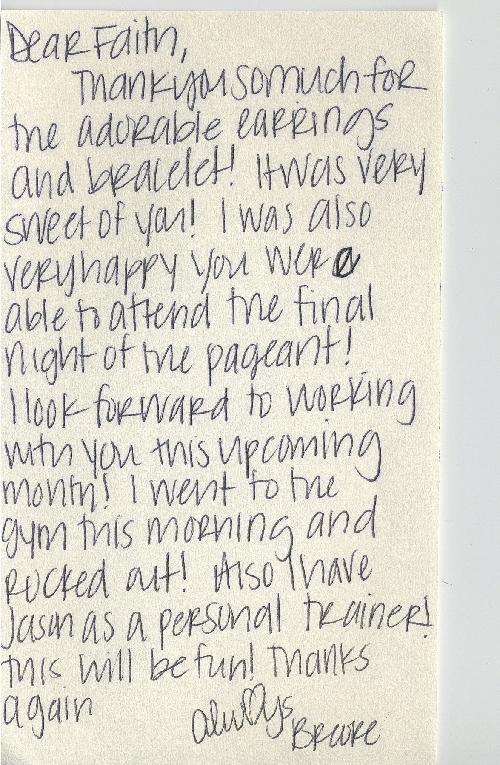 Dear Faith,
Thank you so much for
the adorable earrings
and bracelet! It was very
sweet of you! I was also
very happy you were
able to attend the final
night of the pageant!
I look forward to working
with you this upcoming
month! I went to the
gym this morning and
rocked out! Also I have
Jason as a personal trainer!
this will be fun! Thanks
again
always
Brooke